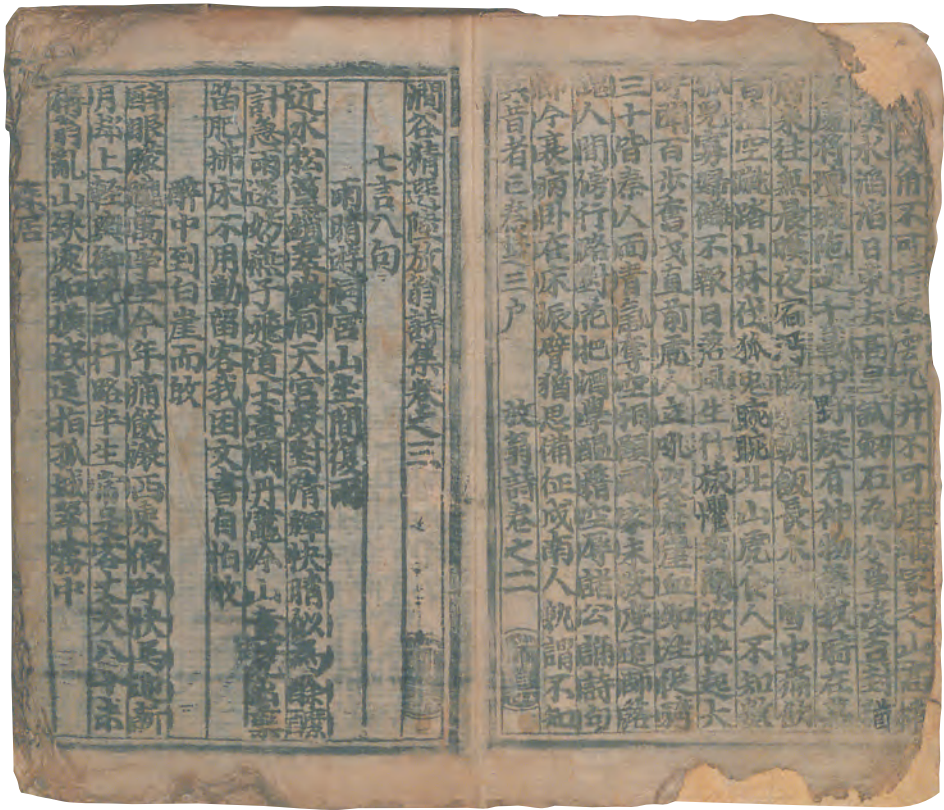 角不可行望雲九井不可度嶓冢之山高插
漢水滔滔日東去高皇試劍石為分草沒苔封猶
處將壇坡陀過千載中野疑有神物護我時在幕
府來往無晨暮夜宿沔陽驛朝飯長木鋪雪中痛飲
百榼空蹴踏山林伐狐兔眈眈北山虎食人不知數
孤兒寡婦讎不報日落風生行旅懼我聞投袂起大
呼聞百步奮戈直前虎人立吼裂蒼崖血如注從騎
三十皆秦人面青氣奪空相顧國家未發度遼師落
魄人間傍行路對花把酒學醞藉空辱諸公誦詩句
即今衰病卧在床振臂猶思備征戍南人孰謂不知
兵昔者亡秦楚三户 放翁詩卷之二
澗谷精選陸放翁詩集卷之三
七言八句
雨晴遊洞宮山坐間復雨
近水松篁鎖翠微洞天宮殿對清輝快晴似為餘醿
計急雨還妨燕子飛道士晝閑丹竈冷山童曉出藥
苗肥拂床不用勤留客我困文書自怕皈
醉中到白崖而皈
醉眼朦朧萬事空今年痛飲瀼西東偶呼快馬迎新
月却上輕輿御晚風行路半生常是客丈夫八十未
稱翁亂山缺處如橫線遙指孤城翠靄中